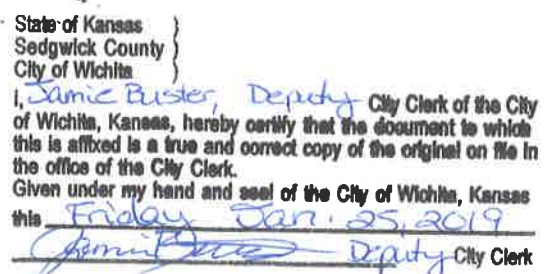 State of Kansas }
Sedgwick County }
City of Wichita }
I, Jamie Buster, Deputy City Clerk of the City
of Wichita, Kansas, hereby certify that the document to which
this is affixed is a true and correct copy of the original on file in
the office of the City Clerk.
Given under my hand and seal of the City of Wichita, Kansas
this Friday Jan. 25, 2019
Jamie Buster Deputy City Clerk